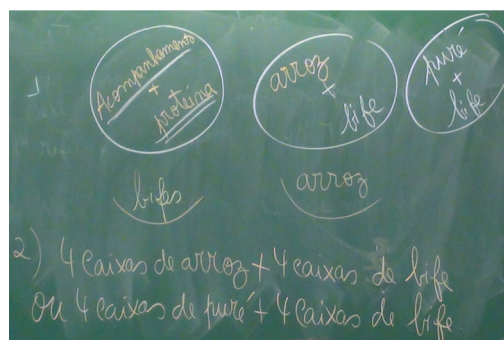 1
Acompanhamento
+
proteína
arroz
+
bife
puré
+
bife
bifes
arroz
2) 4 caixas de arroz + 4 caixas de bife
ou 4 caixas de puré + 4 caixas de bife